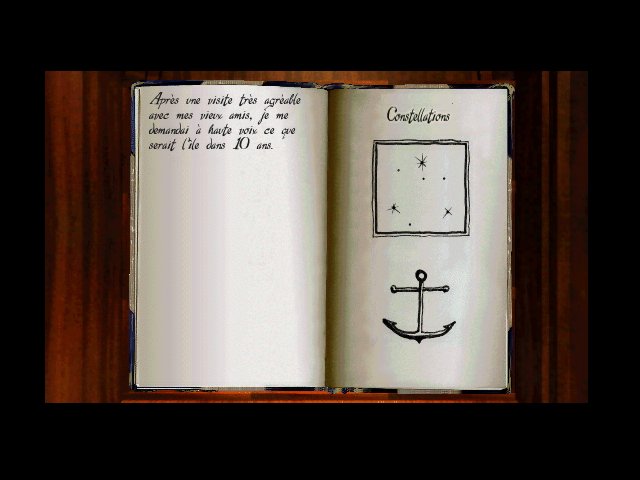 Après une visite très agréable
avec mes vieux amis, je me
demandai à haute voix ce que
serait l'île dans 10 ans.
Constellations